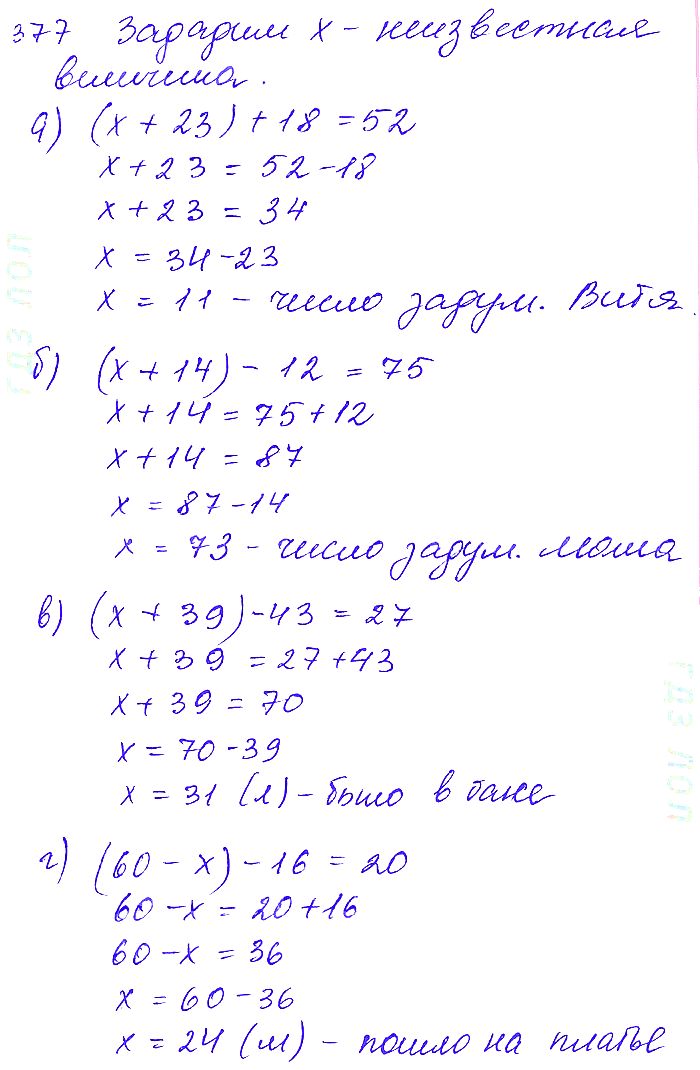 377 Зададим x - неизвестная
величина.
а) (x + 23) + 18 = 52
x + 23 = 52 - 18
x + 23 = 34
x = 34 - 23
x = 11 - число задум. Витя.
б) (x + 14) - 12 = 75
x + 14 = 75 + 12
x + 14 = 87
x = 87 - 14
x = 73 - число задум. Маша
в) (x + 39) - 43 = 27
x + 39 = 27 + 43
x + 39 = 70
x = 70 - 39
x = 31 (л) - было в баке
г) (60 - x) - 16 = 20
60 - x = 20 + 16
60 - x = 36
x = 60 - 36
x = 24 (м) - пошло на платье
гдз поп
гдз поп